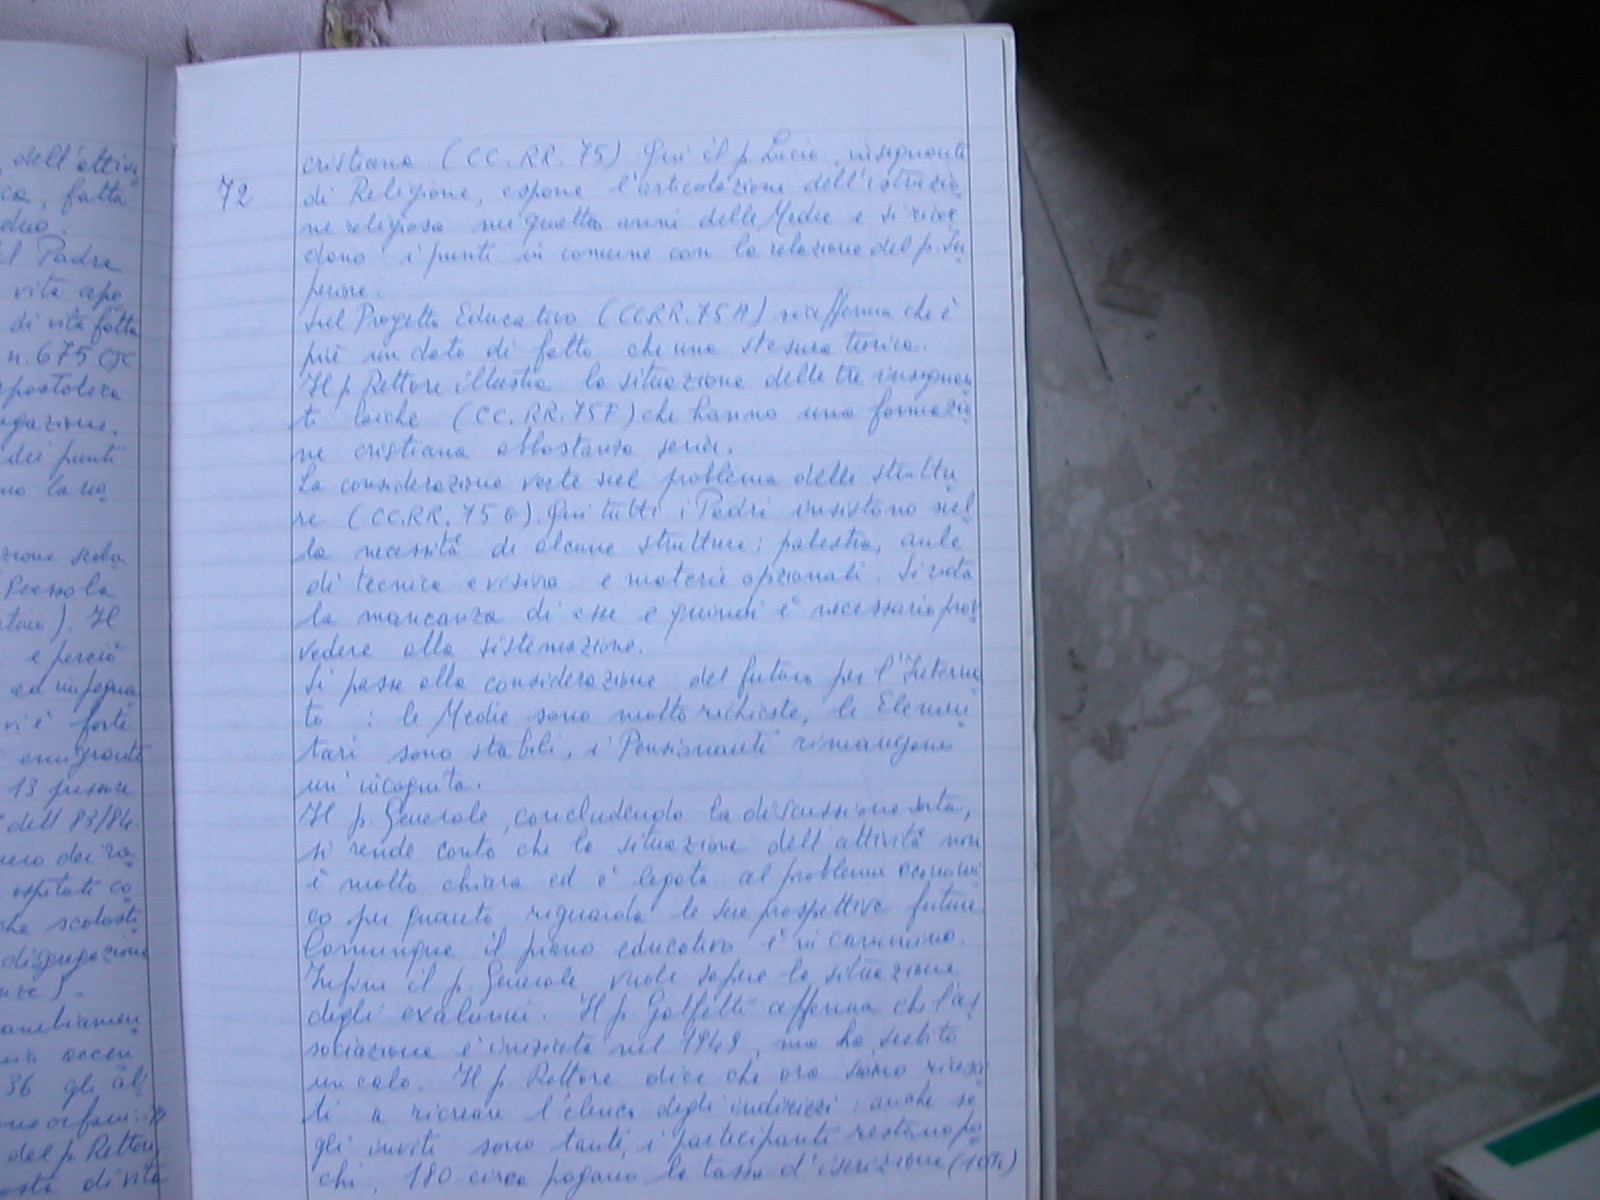 dell'attivi
ca, fatta
duo.
el Padre
vita apo
di vita fatta
n. 675 CJC
apostolica
egazione.
dei punti
no la no
zione scola
Pressola
). Il
e perciò
ed impegna
vi è forte
emigranti
13 presenze
dell' 83/84.
mero dei ra
ospitati co
che scolasti
disgregazione
anchiamen
ma accen
36 gli al
no orfani.
del p. Rettore
osta di vita
72
cristiana (CC.RR. 75) Qui il p. Lucio, insegnante
di Religione, espone l'articolazione dell'istruzio
ne religiosa nei quattro anni delle Medie e si rive
dono i punti in comune con la relazione del p. Su
periore.
Sul Progetto Educativo (CC.RR. 75A) riafferma che è
più un dato di fatto che una stesura teorica.
Il p. Rettore illustra la situazione delle tre insegnan
ti laiche (CC.RR. 75F) che hanno una formazio
ne cristiana abbastanza seria.
La considerazione verte sul problema delle struttu
re (CC.RR. 75G). Qui tutti i Padri insistono sul
la necessità di alcune strutture: palestra, aule
di tecnica e visiva e materie opzionali. Si nota
la mancanza di esse e quindi è necessario prov
vedere alla sistemazione.
Si passa alla considerazione del futuro per l'Interna
to: le Medie sono molto richieste, le Elemen
tari sono stabili, i Pensionanti rimangono
un'incognita.
Il p. Generale, concludendo la discussione sorta,
si rende conto che la situazione dell'attività non
è molto chiara ed è legata al problema economi
co per quanto riguarda le sue prospettive future
Comunque il piano educativo è in cammino.
Infine il p. Generale vuole sapere la situazione
degli exalunni. Il p. Golfetti afferma che l'as
sociazione è iniziata nel 1949, ma ha subito
un calo. Il p. Rettore dice che ora siamo riusci
ti a ricreare l'elenco degli indirizzi: anche se
gli inviti sono tanti, i partecipanti restano po
chi, 180 circa pagano la tassa d'iscrizione